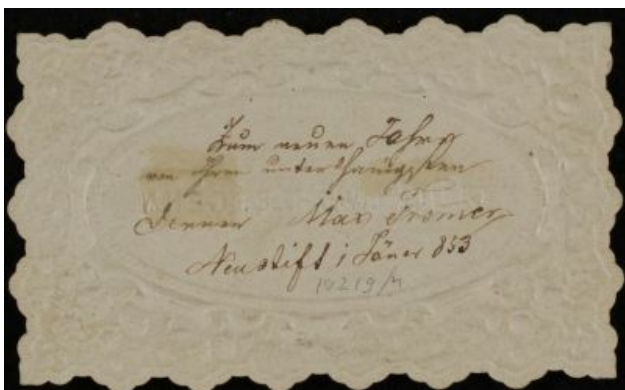 Zum neuen Jahre
von Ihren unterthänigsten
Diener Max Tromer
Neustift i Jäner 853
14219/M